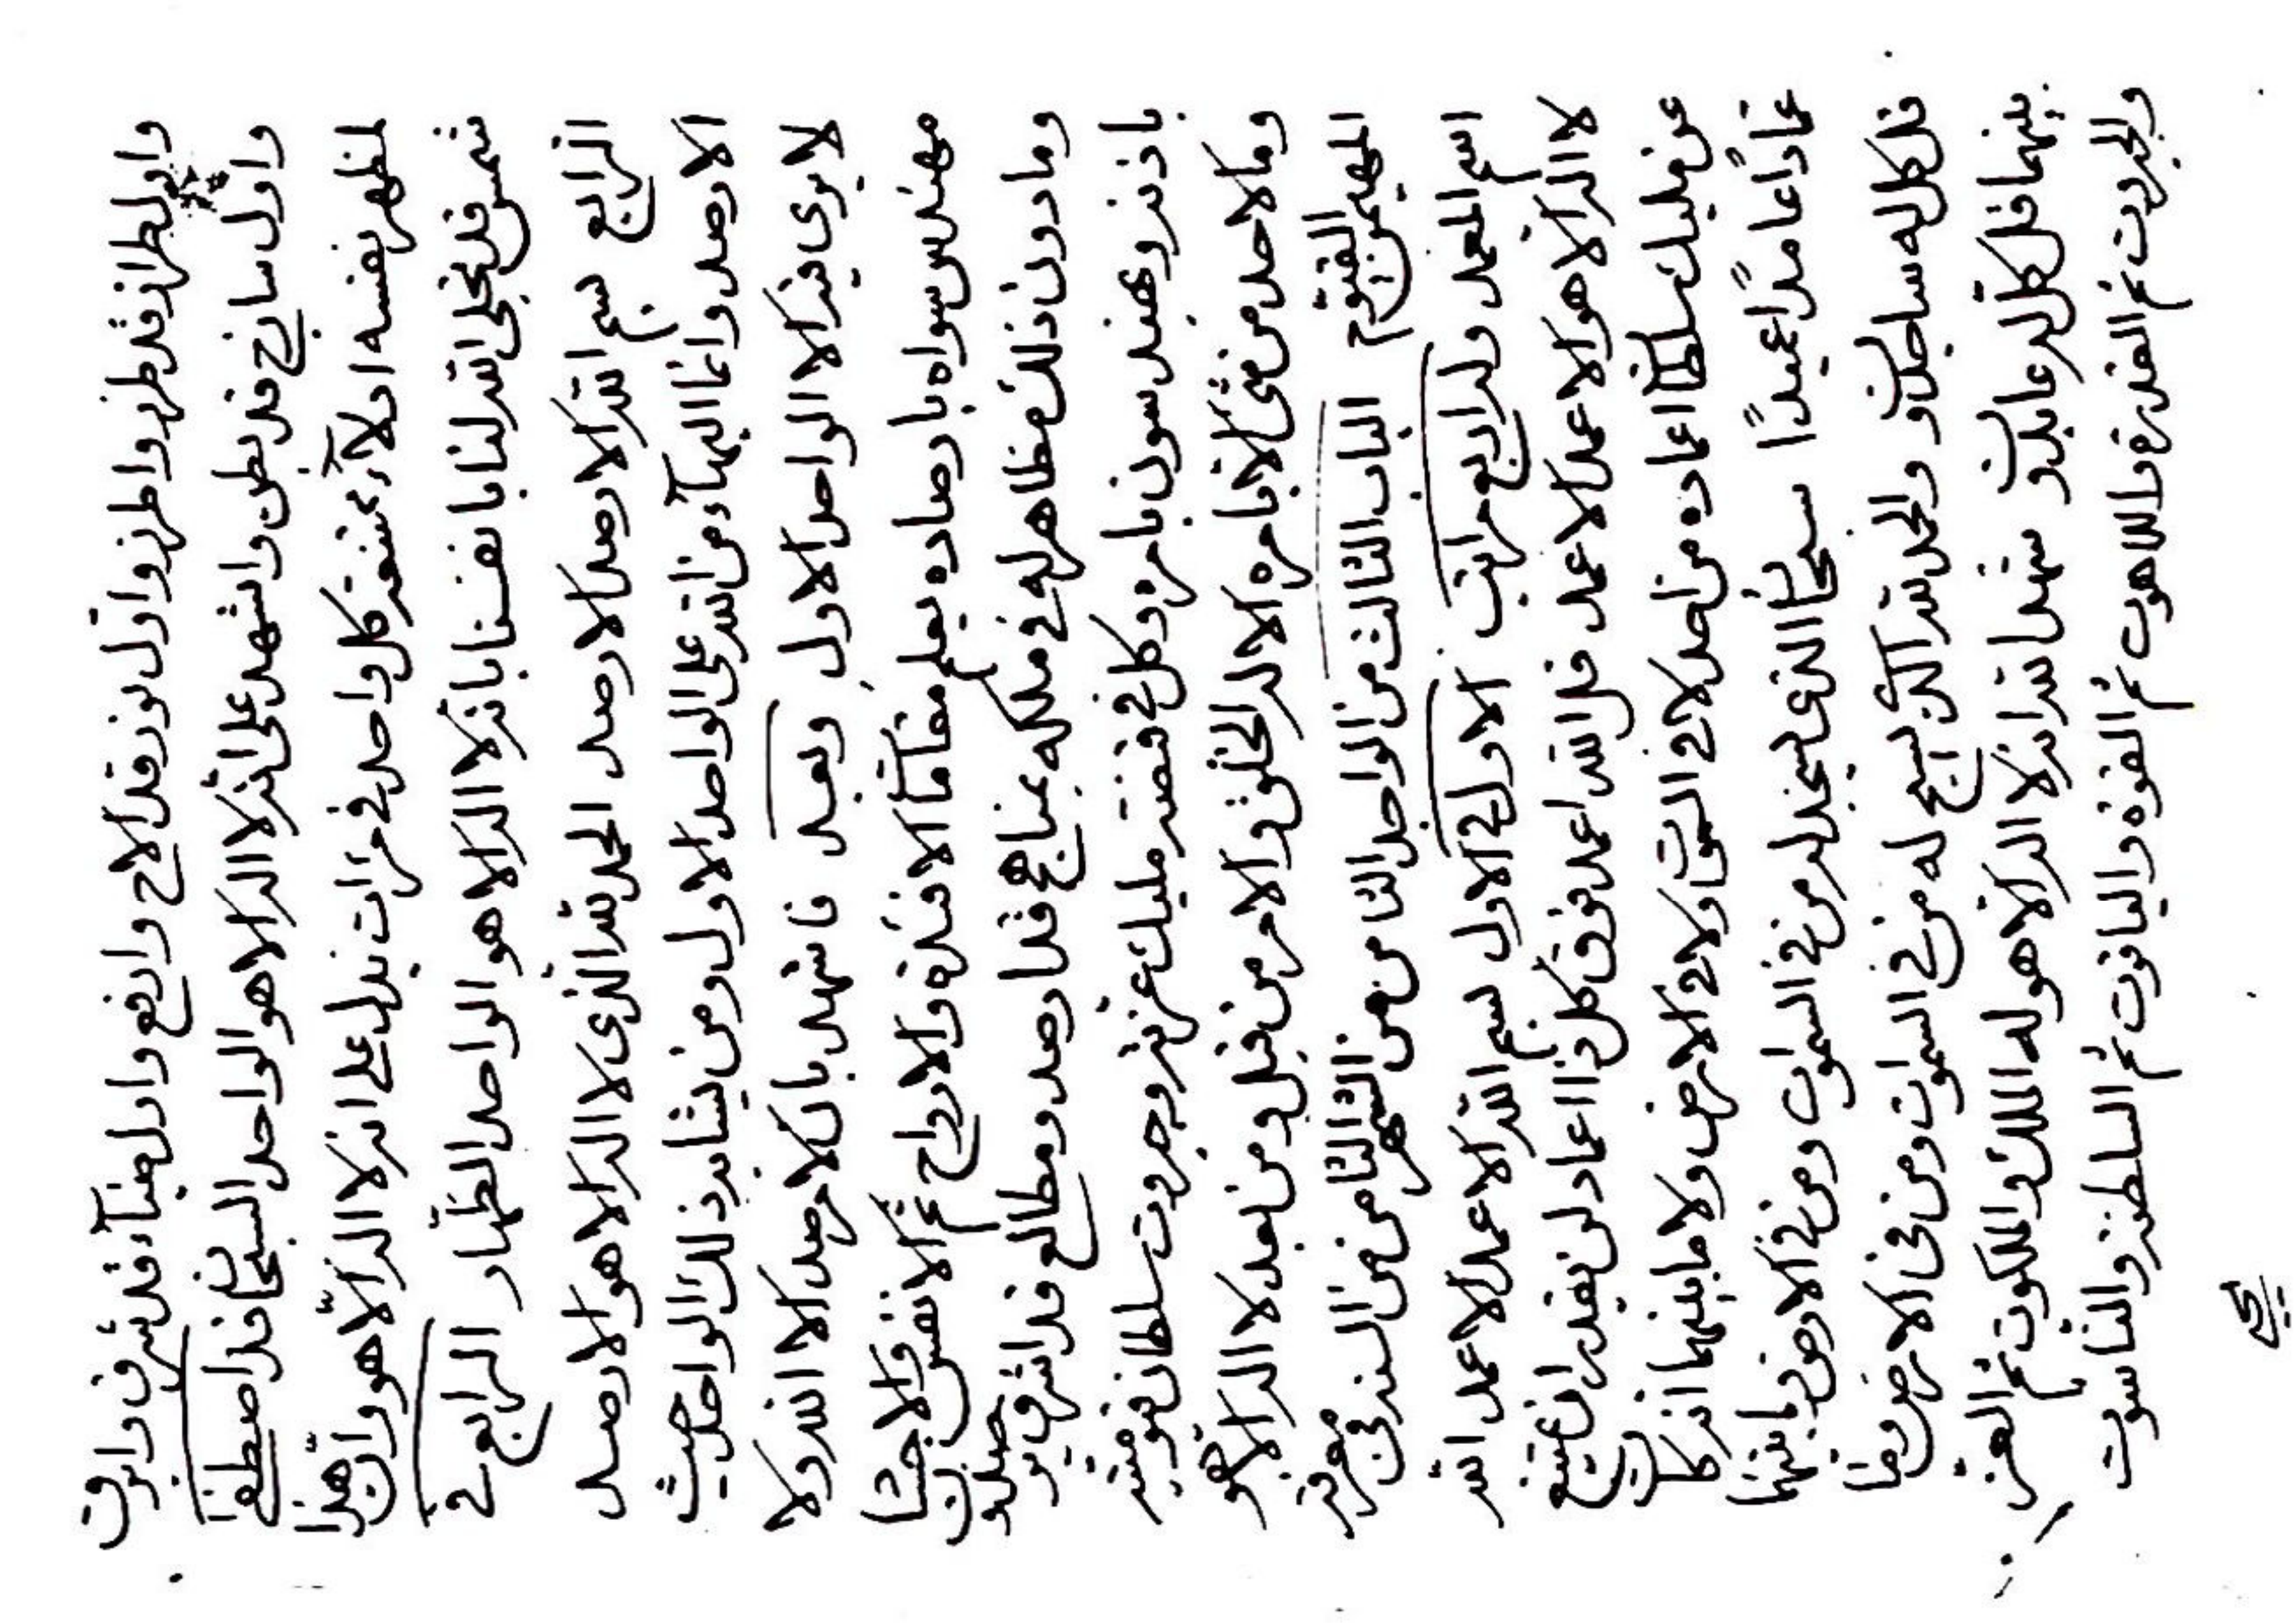 واول طراز قد طرز واطرز واول نور قد لاح وارفع واول ضياء قد شرف وابرق
واول ساذج قد بطن واشهد على انه لا اله الا هو الواحد السبحان قد اصطفا
لمظهر نفسه اولاء بمنعته كل واحد في مرات تدل على انه لا اله الا هو وان هذا
شمس قد تجلى الله لنا بانفسنا بانه لا اله الا هو الواحد الظهار الرابع في
الرابع بسم الله الارصد الارصد الحمد لله الذي لا اله الا هو الارصد
الارصد وانما البهاء من الله على الواحد الاول ومن يشابه ذلك الواحد حيث
لا يرى فيه الا الواحد الاول وبعد فاشهد بان لا مرصد الا الله ولا
مهندس سواه بارصاده يعلم مقاما الافئدة والارواح ثم الانفس والاجسا
وما دون ذلك مظاهر له في ملكه بمناهج قد ارصد ومطالع قد اشرق يرصدون
باذنه ويهندسون بامره وكل في قبضته مليك عز عزه وجبروت سلطان قيوميته
وما لاحد من شئ الا بامره الا له الخلق والامر من قبل ومن بعد لا اله الا هو
المهيمن القيوم الباب الثالث من الواحد الثامن من الشهر الثامن من السنة في معرفة
اسم المعمد وله اربع مراتب الاول في الاول بسم الله الاعمد الاعمد الله
لا اله الا هو الاعمد الاعمد قل الله اعمد فوق كل ذا اعماد لن يقدر ان يمتنع
عن مليك سلطان اعماده من احد لا في السموات ولا في الارض ولا ما بينهما انه كان
عمادا عامدا عميدا سبحان الذي يسجد له من في السموات ومن في الارض وما بينهما
قل كل له ساجدون والحمد لله الذي يسبح له من في السموات ومن في الارض وما
بينهما قل كل له عابدون شهد الله انه لا اله الا هو له الملك والملكوت ثم العز
والجبروت ثم القدرة واللاهوت ثم القوة والياقوت ثم السلطنة والناسوت